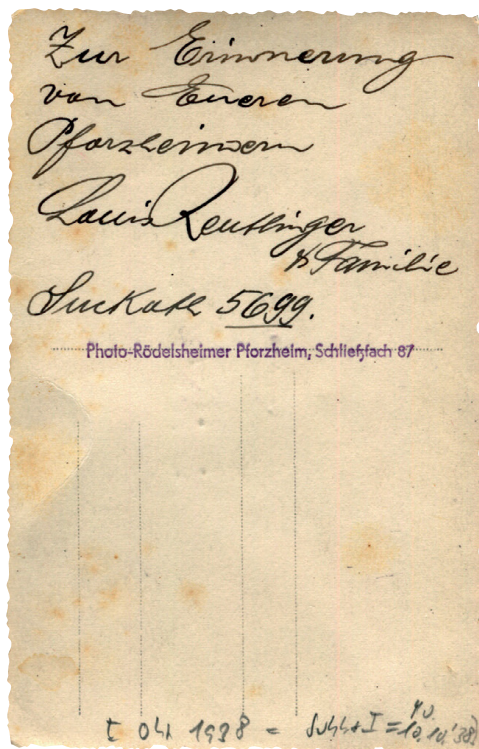 Zur Erinnerung
von Eueren
Pforzheimern
Louis Reutlinger
& Familie
Suckoth 5699.
Photo-Rödelsheimer Pforzheim, Schließfach 87
[ Okt 1938 = Sukk. I = 10. 10. '38]